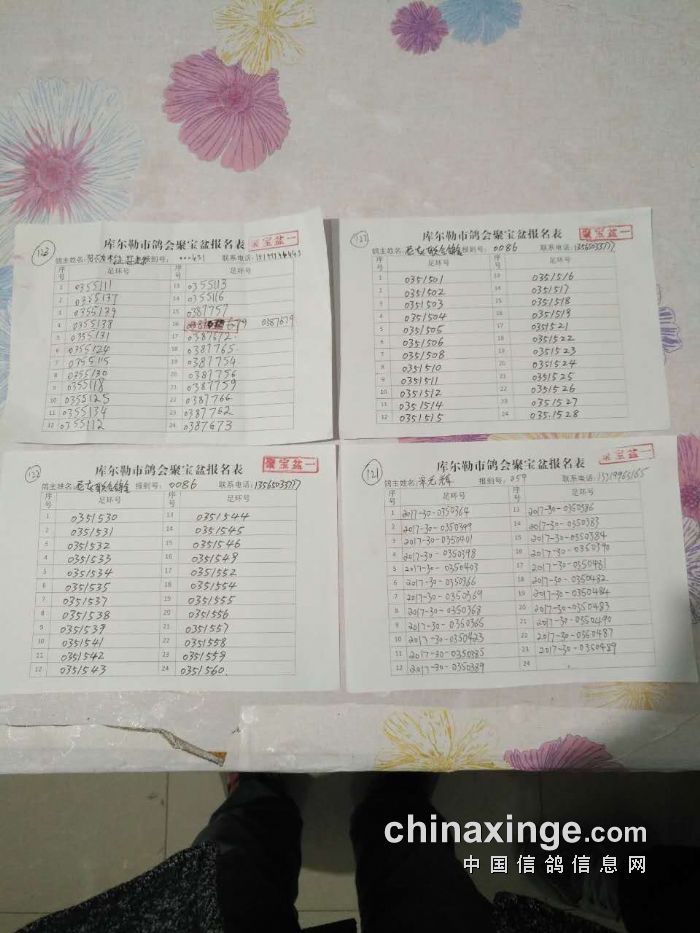 123
库尔勒市鸽会聚宝盆报名表
聚宝盆一
鸽主姓名:
联系电话:
序号 足环号 序号 足环号
1 0355111 13 0355113
2 0355137 14 0355116
3 0355139 15 0387757
4 0355138 16 0387679
5 0355131 17 0387672
6 0355124 18 0387765
7 0355115 19 0387754
8 0355130 20 0387756
9 0355118 21 0387759
10 0355125 22 0387766
11 0355134 23 0387762
12 0355112 24 0387673
122
库尔勒市鸽会聚宝盆报名表
聚宝盆一
鸽主姓名: 报到号: 0086 联系电话:
序号 足环号 序号 足环号
1 0351501 13 0351516
2 0351502 14 0351517
3 0351503 15 0351518
4 0351504 16 0351519
5 0351505 17 0351521
6 0351506 18 0351522
7 0351508 19 0351523
8 0351510 20 0351524
9 0351511 21 0351525
10 0351512 22 0351526
11 0351514 23 0351527
12 0351515 24 0351528
122
库尔勒市鸽会聚宝盆报名表
聚宝盆一
鸽主姓名: 报到号: 0086 联系电话:
序号 足环号 序号 足环号
1 0351530 13 0351544
2 0351531 14 0351545
3 0351532 15 0351546
4 0351533 16 0351549
5 0351534 17 0351552
6 0351535 18 0351554
7 0351537 19 0351555
8 0351538 20 0351556
9 0351539 21 0351557
10 0351541 22 0351558
11 0351542 23 0351559
12 0351543 24 0351560
121
库尔勒市鸽会聚宝盆报名表
聚宝盆一
鸽主姓名: 报到号: 059 联系电话:
序号 足环号 序号 足环号
1 2017-30-0350364 13 2017-30-0350386
2 2017-30-0350399 14 2017-30-0350383
3 2017-30-0350401 15 2017-30-0350384
4 2017-30-0350398 16 2017-30-0350390
5 2017-30-0350403 17 2017-30-0350481
6 2017-30-0350366 18 2017-30-0350482
7 2017-30-0350369 19 2017-30-0350484
8 2017-30-0350368 20 2017-30-0350483
9 2017-30-0350365 21 2017-30-0350490
10 2017-30-0350423 22 2017-30-0350487
11 2017-30-0350385 23 2017-30-0350489
12 2017-30-0350389 24
chinaxinge.com
中国信鸽信息网